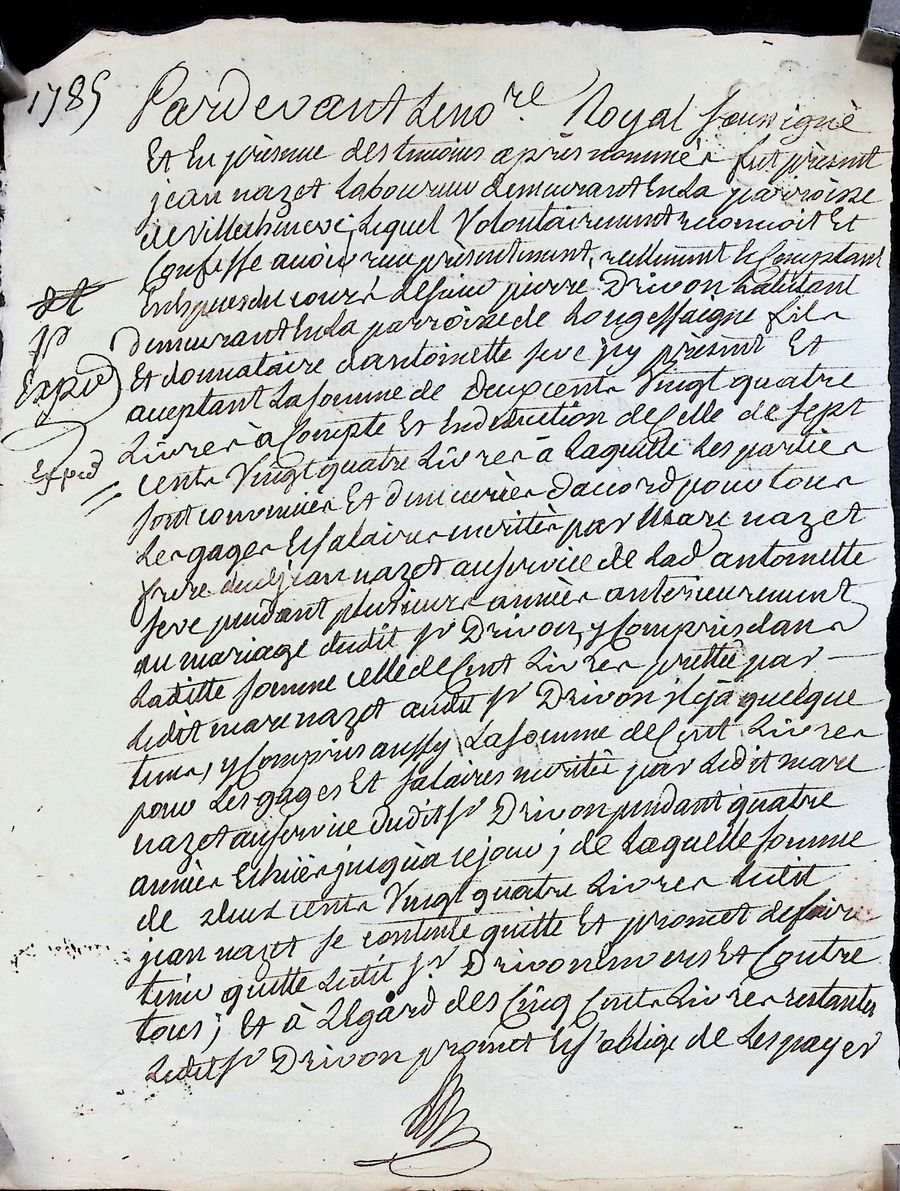 1785
Pardevant Le no.re Royal soussigné
Et En présence des temoins après nommés fut présent
jean nazet Laboureur demeurant En La parroisse
de villechneve, Lequel Volontairement reconnoit Et
Confesse avoir reçu présentement, réellement Et Comptant
En Espèces du cours de sieur pierre Drivon habitant
demeurant En La parroisse de Longessaigne fils
Et donnataire d'antoinette seve icy présent Et
aceptant La somme de Deux cents Vingt quatre
Livres à Compte Et En deduction de Celle de sept
cents Vingt quatre Livres à Laquelle Les parties
sont convenües Et demeurées d'accord pour tous
Les gages Et salaires merités par Marc nazet
frere dudit jean nazet au service de Lad antoinette
seve pendant plusieurs années anterieurement
au mariage dudit sr Drivon, y Compris dans
Laditte somme celle de Cent Livres prettée par
Ledit marc nazet audit sr Drivon il y a quelque
tems, y Compris aussy La somme de Cent Livres
pour Les gages Et salaires merités par Ledit marc
nazet au service dudit sr Drivon pendant quatre
années Echües jusqu'a ce jour ; de Laquelle somme
de deux cents Vingt quatre Livres Ledit
jean nazet se contente quitte Et promet de faire
tenir quitte Ledit sr Drivon envers Et Contre
tous ; Et à L'Egard des Cinq Cents Livres restantes
Ledit sr Drivon promet Et s'oblige de Les payer
Expié
Expié